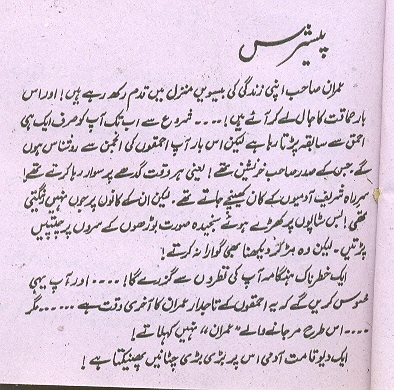 پیشرس
عمران صاحب اپنی زندگی کی بیسویں منزل میں قدم رکھ رہے ہیں! اور اس
بار حماقت کا جال لے کر آئے ہیں! .... شروع سے اب تک آپ کو صرف ایک ہی
احمق سے سابقہ پڑتا رہا ہے لیکن اس بار آپ احمقوں کی انجمن سے روشناس ہوں
گے جس کے صدر صاحب خرنشین تھے! یعنی ہر وقت گدھے پر سوار رہا کرتے تھے!
سرِراہ شریف آدمیوں کے کان کھینچے جاتے تھے۔ لیکن ان کے کانوں پر جوں نہیں رینگتی
تھی! بس اسٹاپوں پر کھڑے ہوئے سنجیدہ صورت بوڑھوں کے سروں پر چپتیں
پڑتیں۔ لیکن وہ مڑ کر دیکھنا بھی گوارا نہ کرتے!
ایک خطرناک ہنگامہ آپ کی نظروں سے گزرے گا! .... اور آپ یہی
محسوس کریں گے کہ یہ احمقوں کے تاجدار عمران کا آخری وقت ہے ...... مگر
.... اس طرح مر جانے والے "عمران" نہیں کہلاتے!
ایک دیو قامت آدمی اس پر بڑی بڑی چٹانیں پھینکتا ہے!